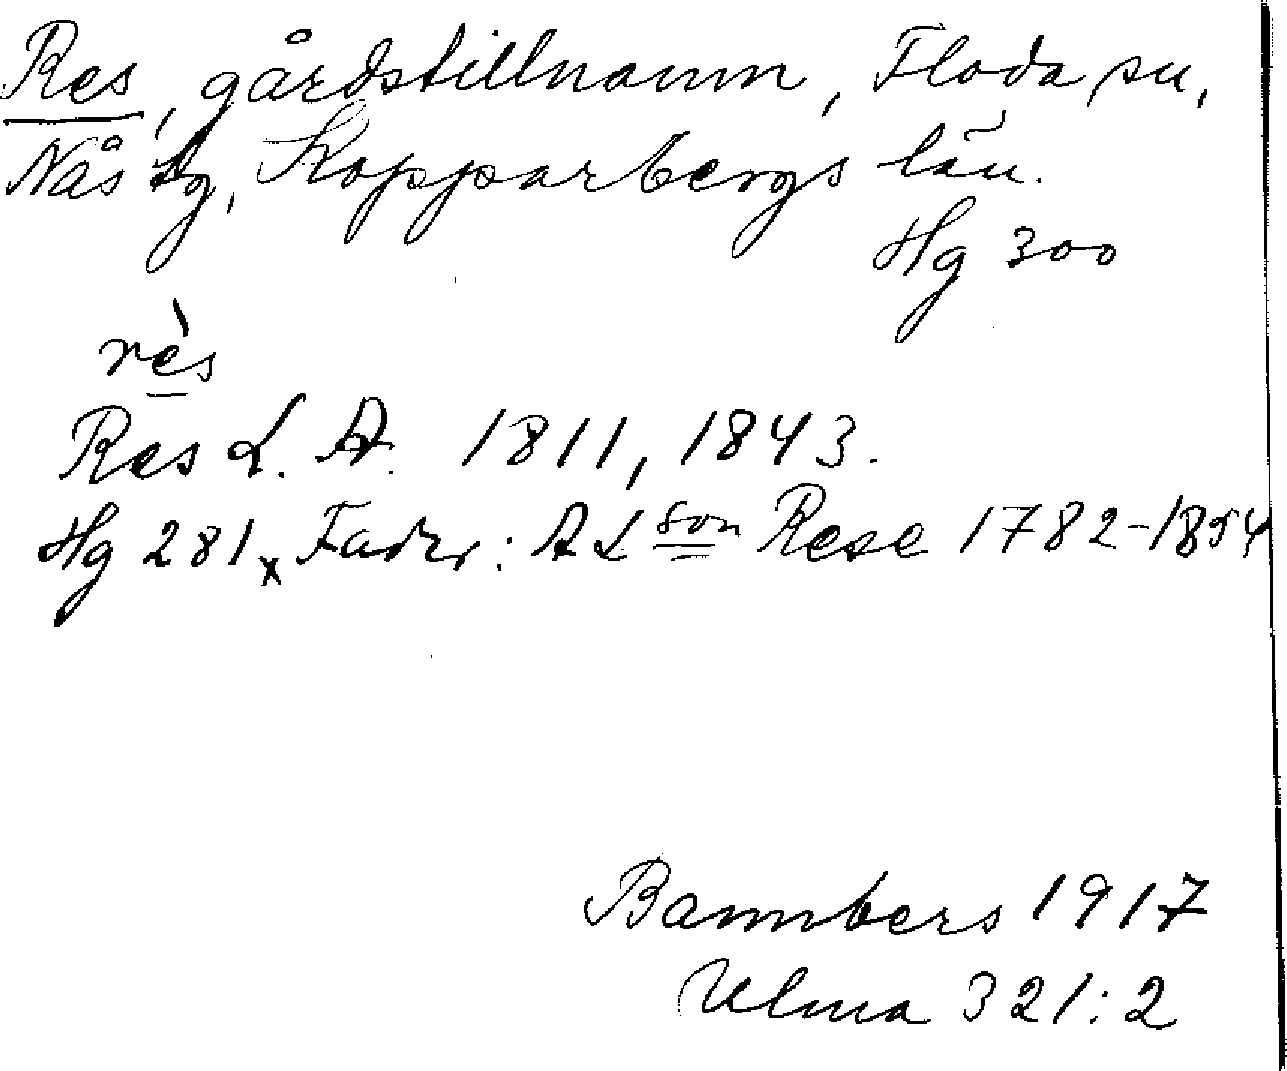 Res, gårdstillnamn, Floda sn,
Nås tg, Kopparbergs län.
Hg 300
rès
Res L. A. 1811, 1843.
Hg 281 x Fadr: A L son Rese 1782-1854
Bannbers 1917
Ulma 321:2